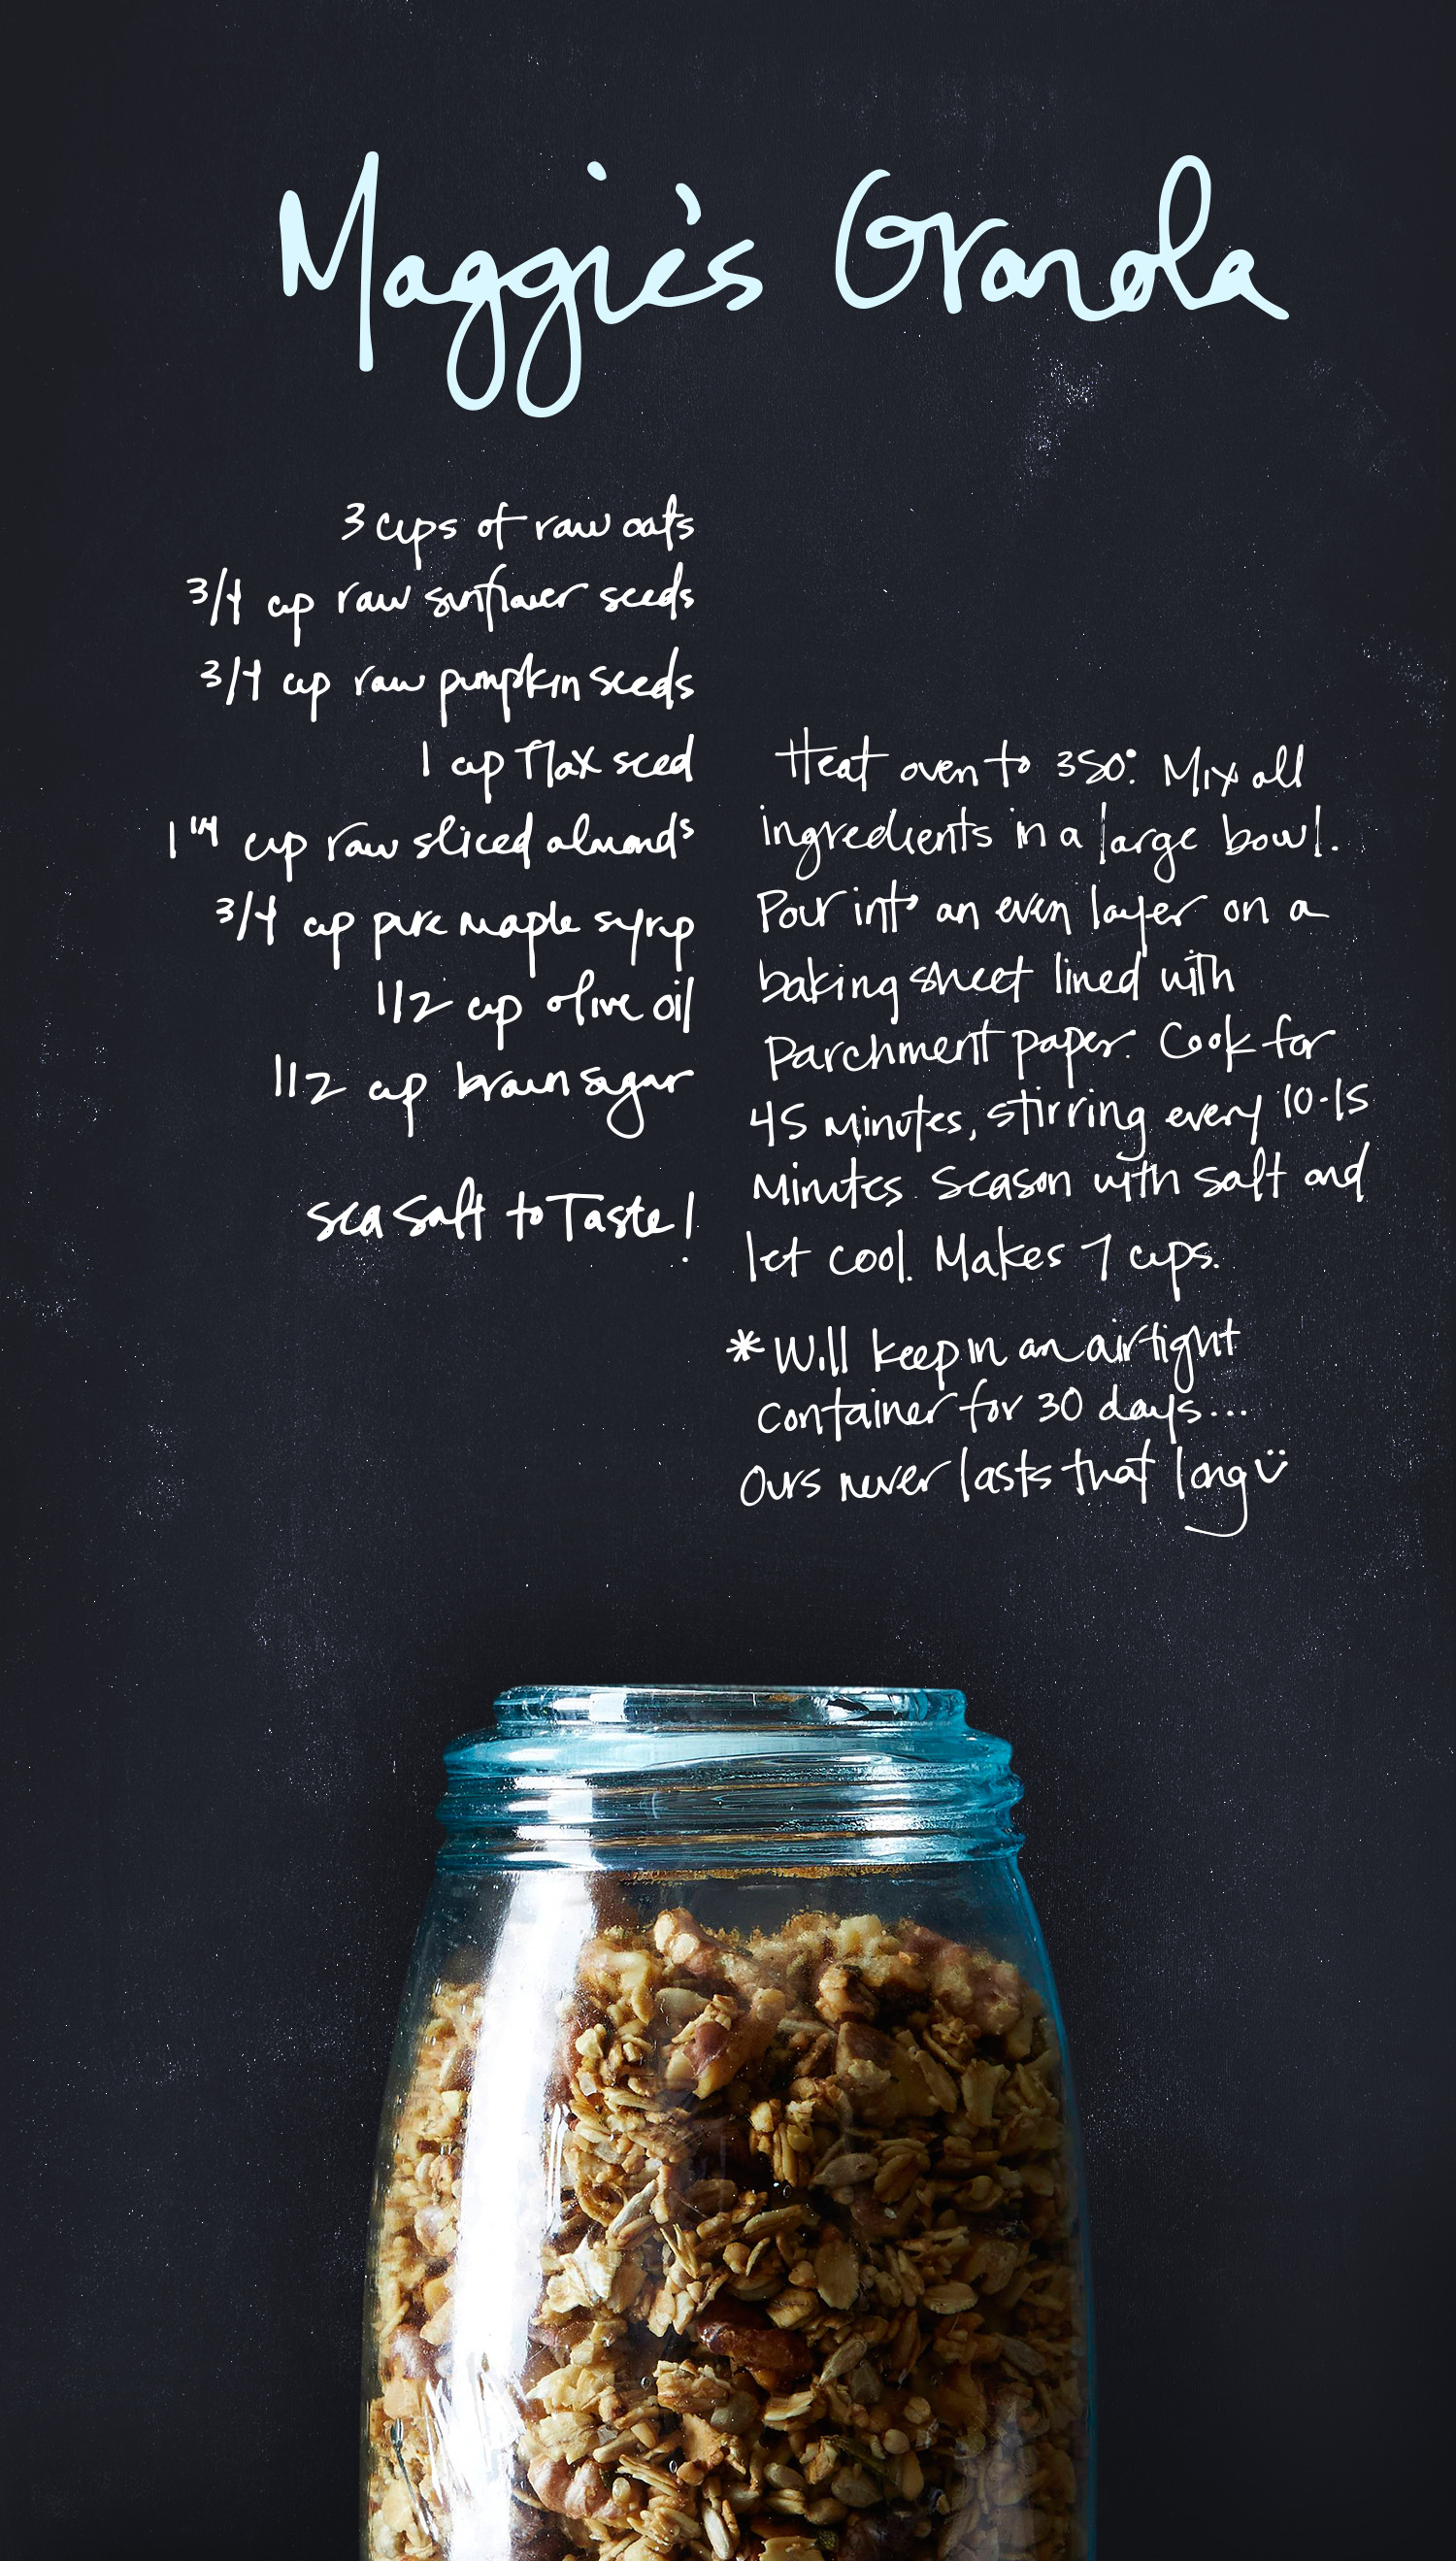 Maggie's Granola
3 cups of raw oats
3/4 cup raw sunflower seeds
3/4 cup raw pumpkin seeds
1 cup flax seed
1 1/4 cup raw sliced almonds
3/4 cup pure maple syrup
1/2 cup olive oil
1/2 cup brown sugar
sea salt to Taste!
Heat oven to 350°. Mix all
ingredients in a large bowl.
Pour into an even layer on a
baking sheet lined with
parchment paper. Cook for
45 minutes, stirring every 10-15
minutes. Season with salt and
let cool. Makes 7 cups.
*Will keep in an airtight
container for 30 days...
Ours never lasts that long ü